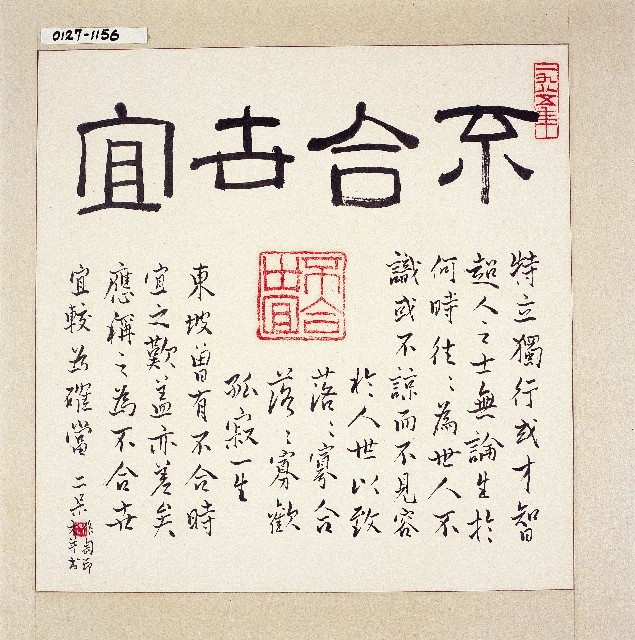 0127-1156
不合世宜
不合世宜
特立獨行或才智
超人之士無論生於
何時往〻為世人不
識或不諒而不見容
於人世以致
落〻寡合
落〻寡歡
孤寂一生
東坡曾有不合時
宜之歎蓋亦差矣
應稱之為不合世
宜較為確當 二呆